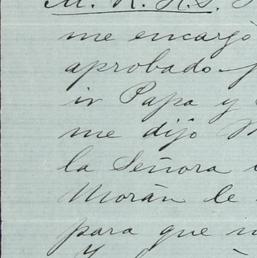 M. R. H. S.
me encargó
aprobado
ir Papa y
me dijo
la Señora
Morán le
para que
Y